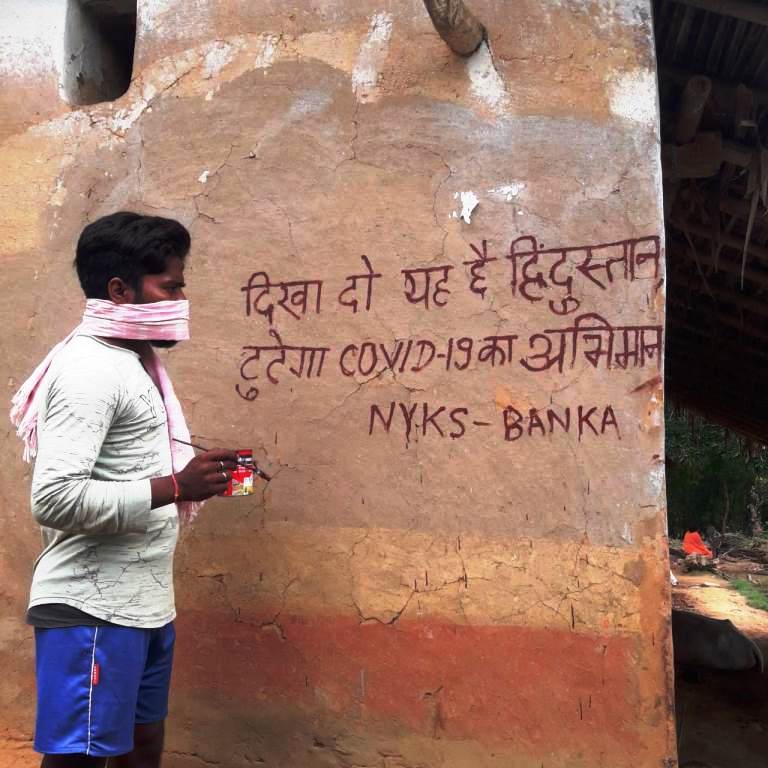 दिखा दो यह है हिंदुस्तान
टुटेगा COVID-19 का अभिमान
NYKS-BANKA